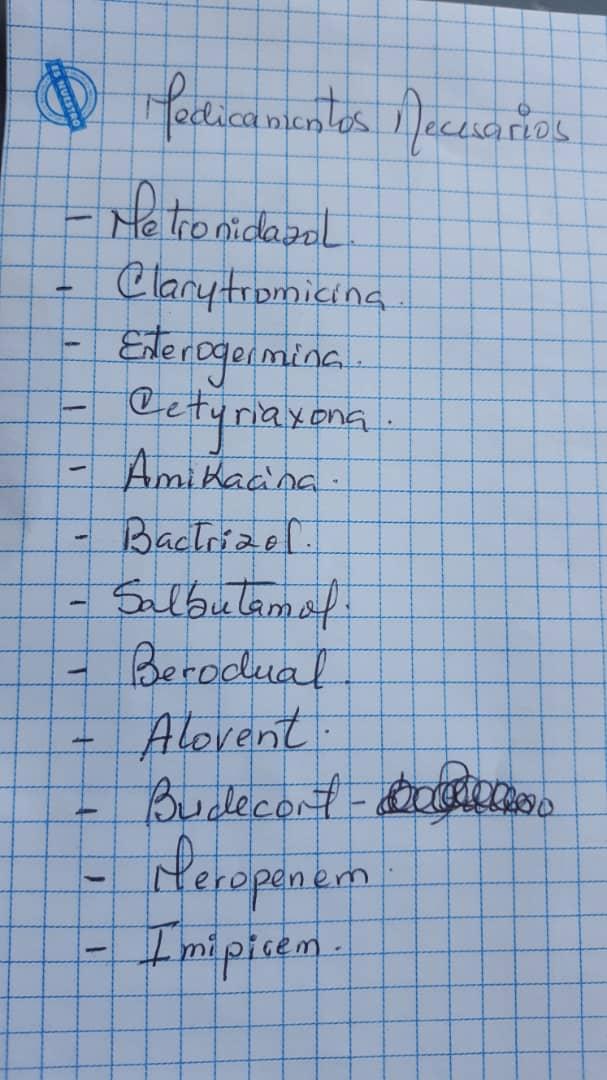 ES NUESTRO
Medicamentos Necesarios
- Metronidazol.
- Clarytromicina.
- Enterogermina.
- Cetyriaxona.
- Amikacina.
- Bactrizol.
- Salbutamol.
- Berodual.
- Alovent.
- Budecort -
- Meropenem.
- Imipicem.